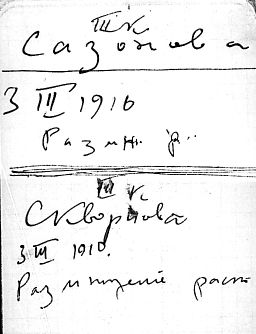 III к.
Сазонова
3 III 1916
Размнж. р..
III к.
Скворцова
3 III 1910.
Размножение раст